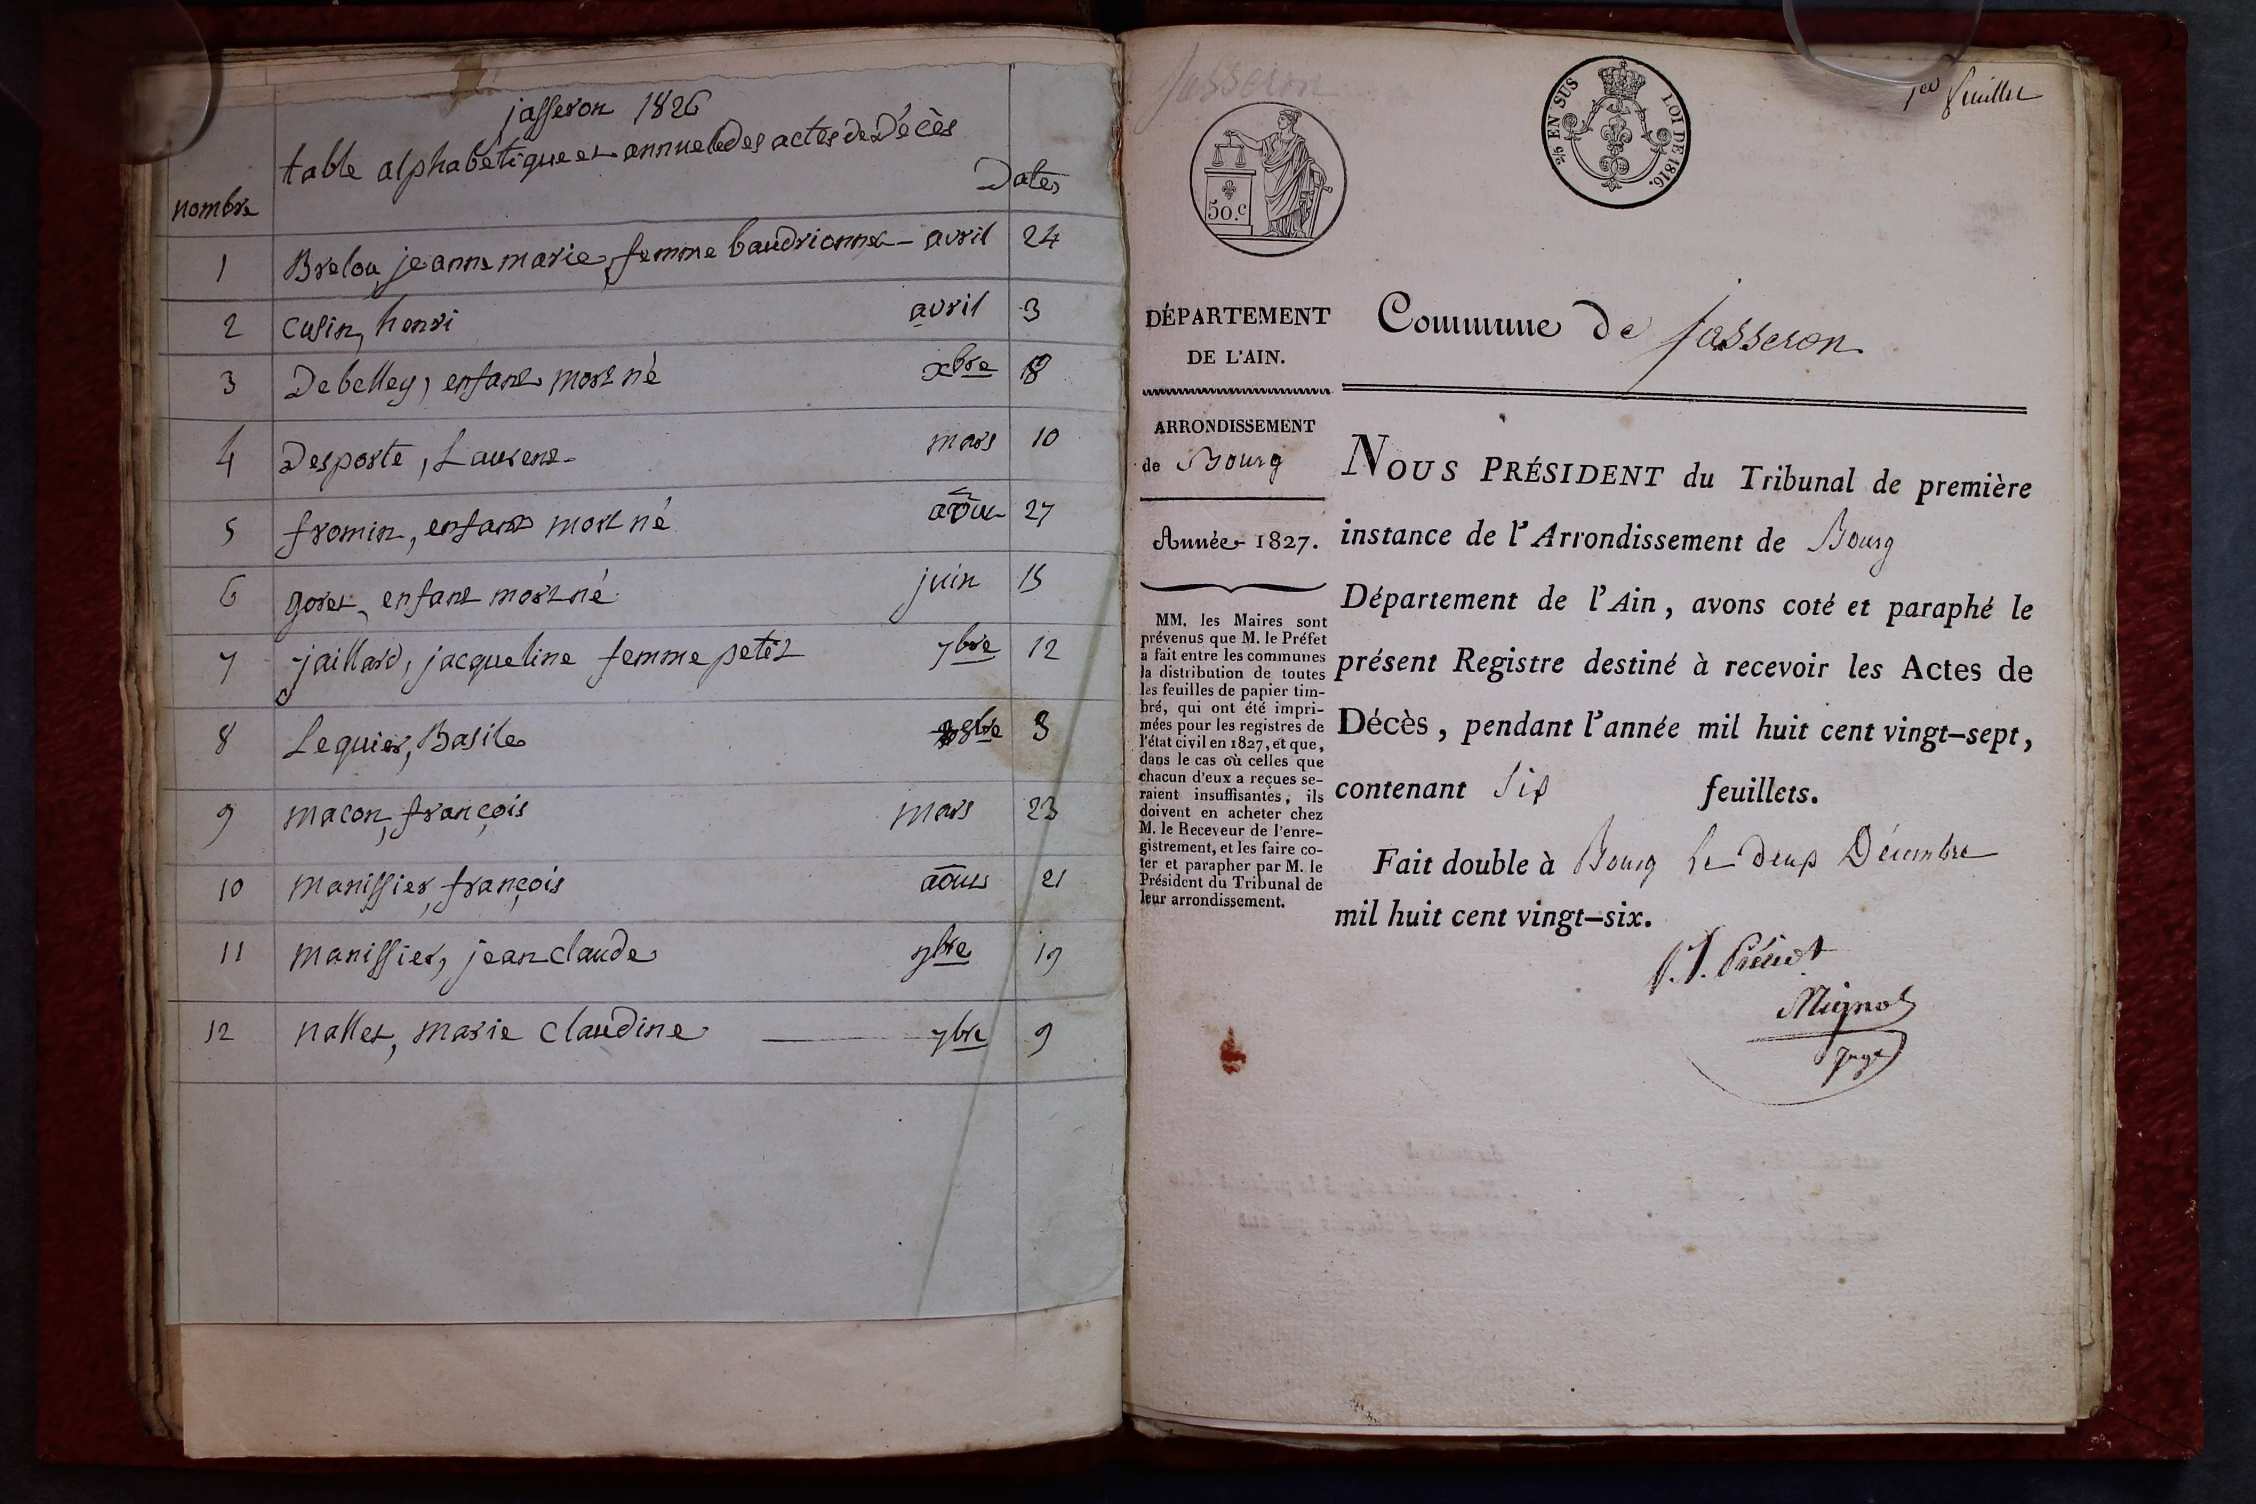 jasseron 1826
table alphabétique et annuelle des actes de Décès
nombre
Dates
1 Brelou, jeanne marie, femme baudrionnet - avril 24
2 cusin, henri avril 3
3 Debelley, enfant mort né xbre 18
4 Desporte, Laurent mars 10
5 fromin, enfant mort né août 27
6 goret, enfant mort né juin 15
7 jaillard, jacqueline femme petit 7bre 12
8 Lequier, Basile 8bre 3
9 macon, françois mars 23
10 manissier, françois août 21
11 manissier, jean claude 9bre 19
12 nallet, marie claudine 7bre 9
Jasseron
1er feuillet
2/5 EN SUS
LOI DE 1816.
50.c
DÉPARTEMENT
DE L'AIN.
ARRONDISSEMENT
de Bourg
Année 1827.
MM. les Maires sont
prévenus que M. le Préfet
a fait entre les communes
la distribution de toutes
les feuilles de papier tim-
bré, qui ont été impri-
mées pour les registres de
l'état civil en 1827, et que,
dans le cas où celles que
chacun d'eux a reçues se-
raient insuffisantes, ils
doivent en acheter chez
M. le Receveur de l'enre-
gistrement, et les faire co-
ter et parapher par M. le
Président du Tribunal de
leur arrondissement.
Commune de Jasseron
NOUS PRÉSIDENT du Tribunal de première
instance de l'Arrondissement de Bourg
Département de l'Ain, avons coté et paraphé le
présent Registre destiné à recevoir les Actes de
Décès, pendant l'année mil huit cent vingt-sept,
contenant Six feuillets.
Fait double à Bourg le deux Décembre
mil huit cent vingt-six.
Mignot
Juge